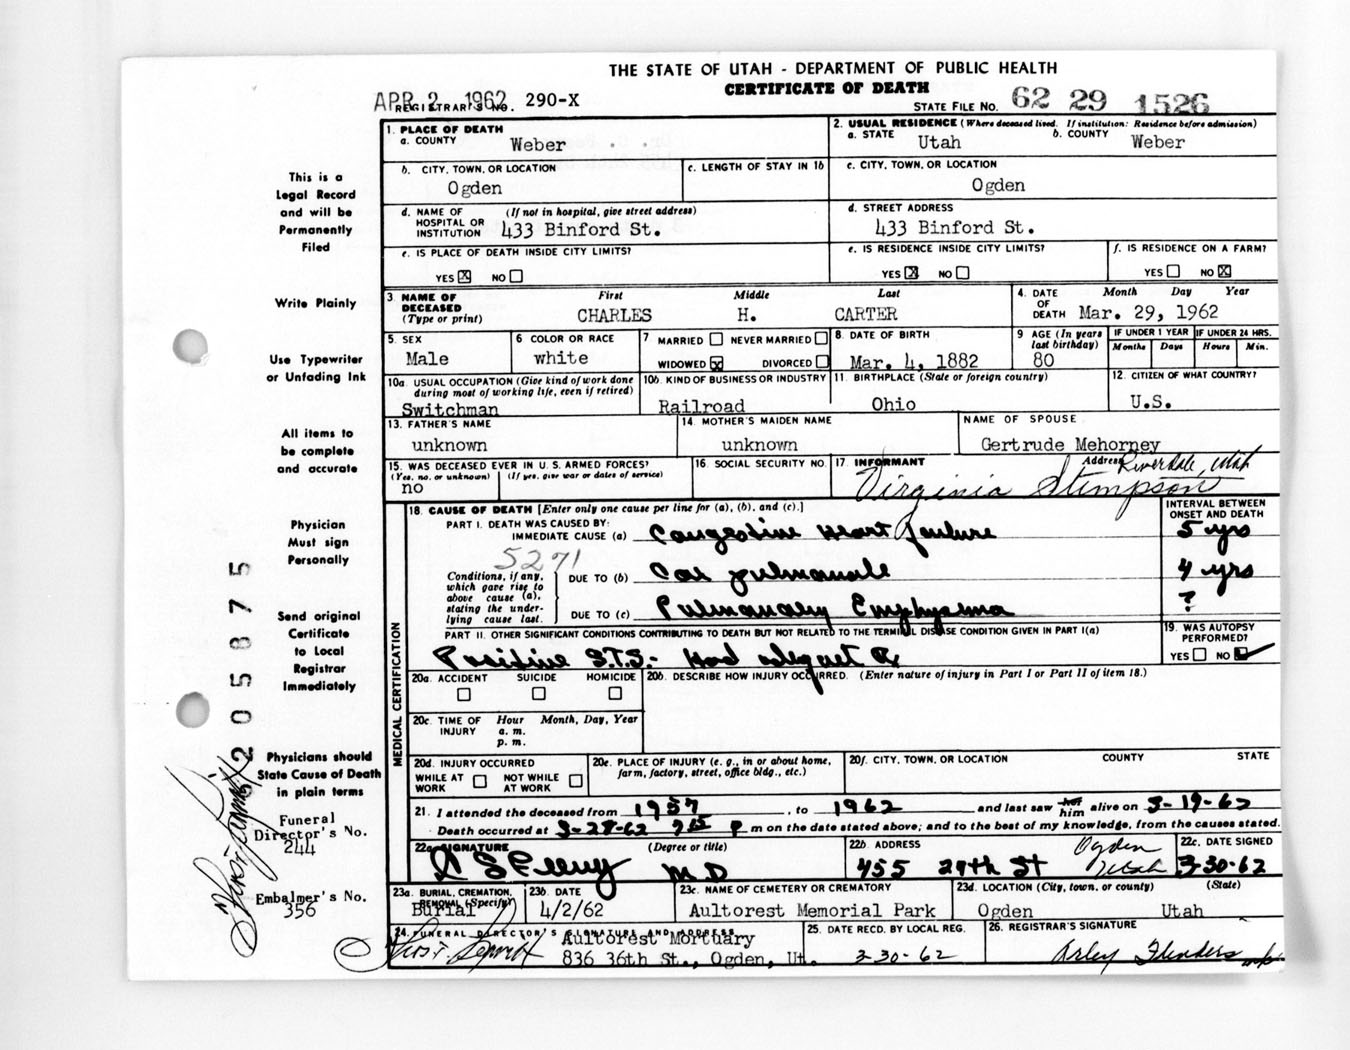 THE STATE OF UTAH - DEPARTMENT OF PUBLIC HEALTH
CERTIFICATE OF DEATH
APR 2 1962
REGISTRAR'S NO. 290-X
STATE FILE NO. 62 29 1526
This is a
Legal Record
and will be
Permanently
Filed
Write Plainly
Use Typewriter
or Unfading Ink
All items to
be complete
and accurate
Physician
Must sign
Personally
Send original
Certificate
to Local
Registrar
Immediately
Physicians should
State Cause of Death
in plain terms
Funeral
Director's No.
244
Embalmer's No.
356
205875
1. PLACE OF DEATH
a. COUNTY Weber
2. USUAL RESIDENCE (Where deceased lived. If institution: Residence before admission)
a. STATE Utah b. COUNTY Weber
b. CITY, TOWN, OR LOCATION
Ogden
c. LENGTH OF STAY IN 1b
c. CITY, TOWN, OR LOCATION
Ogden
d. NAME OF HOSPITAL OR INSTITUTION (If not in hospital, give street address)
433 Binford St.
d. STREET ADDRESS
433 Binford St.
e. IS PLACE OF DEATH INSIDE CITY LIMITS?
YES X NO
e. IS RESIDENCE INSIDE CITY LIMITS?
YES X NO
f. IS RESIDENCE ON A FARM?
YES NO X
3 NAME OF DECEASED (Type or print)
First Middle Last
CHARLES H. CARTER
4. DATE OF DEATH Month Day Year
Mar. 29, 1962
5. SEX
Male
6 COLOR OR RACE
white
7 MARRIED NEVER MARRIED
WIDOWED X DIVORCED
8. DATE OF BIRTH
Mar. 4, 1882
9 AGE (In years last birthday)
80
IF UNDER 1 YEAR IF UNDER 24 HRS.
Months Days Hours Min.
10a. USUAL OCCUPATION (Give kind of work done during most of working life, even if retired)
Switchman
10b. KIND OF BUSINESS OR INDUSTRY
Railroad
11. BIRTHPLACE (State or foreign country)
Ohio
12. CITIZEN OF WHAT COUNTRY?
U.S.
13. FATHER'S NAME
unknown
14. MOTHER'S MAIDEN NAME
unknown
NAME OF SPOUSE
Gertrude Mehorney
15. WAS DECEASED EVER IN U. S. ARMED FORCES?
(Yes, no, or unknown) (If yes, give war or dates of service)
no
16. SOCIAL SECURITY NO.
17. INFORMANT Address Riverdale, Utah
Virginia Stimpson
18. CAUSE OF DEATH [Enter only one cause per line for (a), (b), and (c).]
INTERVAL BETWEEN ONSET AND DEATH
PART I. DEATH WAS CAUSED BY:
IMMEDIATE CAUSE (a) Congestive Heart failure 5 yrs
5271
Conditions, if any, which gave rise to above cause (a), stating the underlying cause last.
DUE TO (b) Cor pulmonale 4 yrs
DUE TO (c) Pulmonary Emphysema ?
PART II. OTHER SIGNIFICANT CONDITIONS CONTRIBUTING TO DEATH BUT NOT RELATED TO THE TERMINAL DISEASE CONDITION GIVEN IN PART I(a)
Positive S.T.S. - Had adequat Rx
19. WAS AUTOPSY PERFORMED?
YES NO
MEDICAL CERTIFICATION
20a. ACCIDENT SUICIDE HOMICIDE
20b. DESCRIBE HOW INJURY OCCURRED. (Enter nature of injury in Part I or Part II of item 18.)
20c. TIME OF INJURY Hour Month, Day, Year
a. m.
p. m.
20d. INJURY OCCURRED
WHILE AT WORK NOT WHILE AT WORK
20e. PLACE OF INJURY (e. g., in or about home, farm, factory, street, office bldg., etc.)
20f. CITY, TOWN, OR LOCATION COUNTY STATE
21. I attended the deceased from 1957, to 1962 and last saw her him alive on 3-19-62
Death occurred at 3-28-62 7 15 P m on the date stated above; and to the best of my knowledge, from the causes stated.
22a. SIGNATURE (Degree or title)
M D
22b. ADDRESS
455 29th St Ogden Utah
22c. DATE SIGNED
3-30-62
23a. BURIAL, CREMATION, REMOVAL (Specify)
Burial
23b. DATE
4/2/62
23c. NAME OF CEMETERY OR CREMATORY
Aultorest Memorial Park
23d. LOCATION (City, town, or county) (State)
Ogden Utah
24. FUNERAL DIRECTOR'S SIGNATURE AND ADDRESS
Aultorest Mortuary
836 36th St., Ogden, Ut.
25. DATE RECD. BY LOCAL REG.
3-30-62
26. REGISTRAR'S SIGNATURE
Arley Flinders